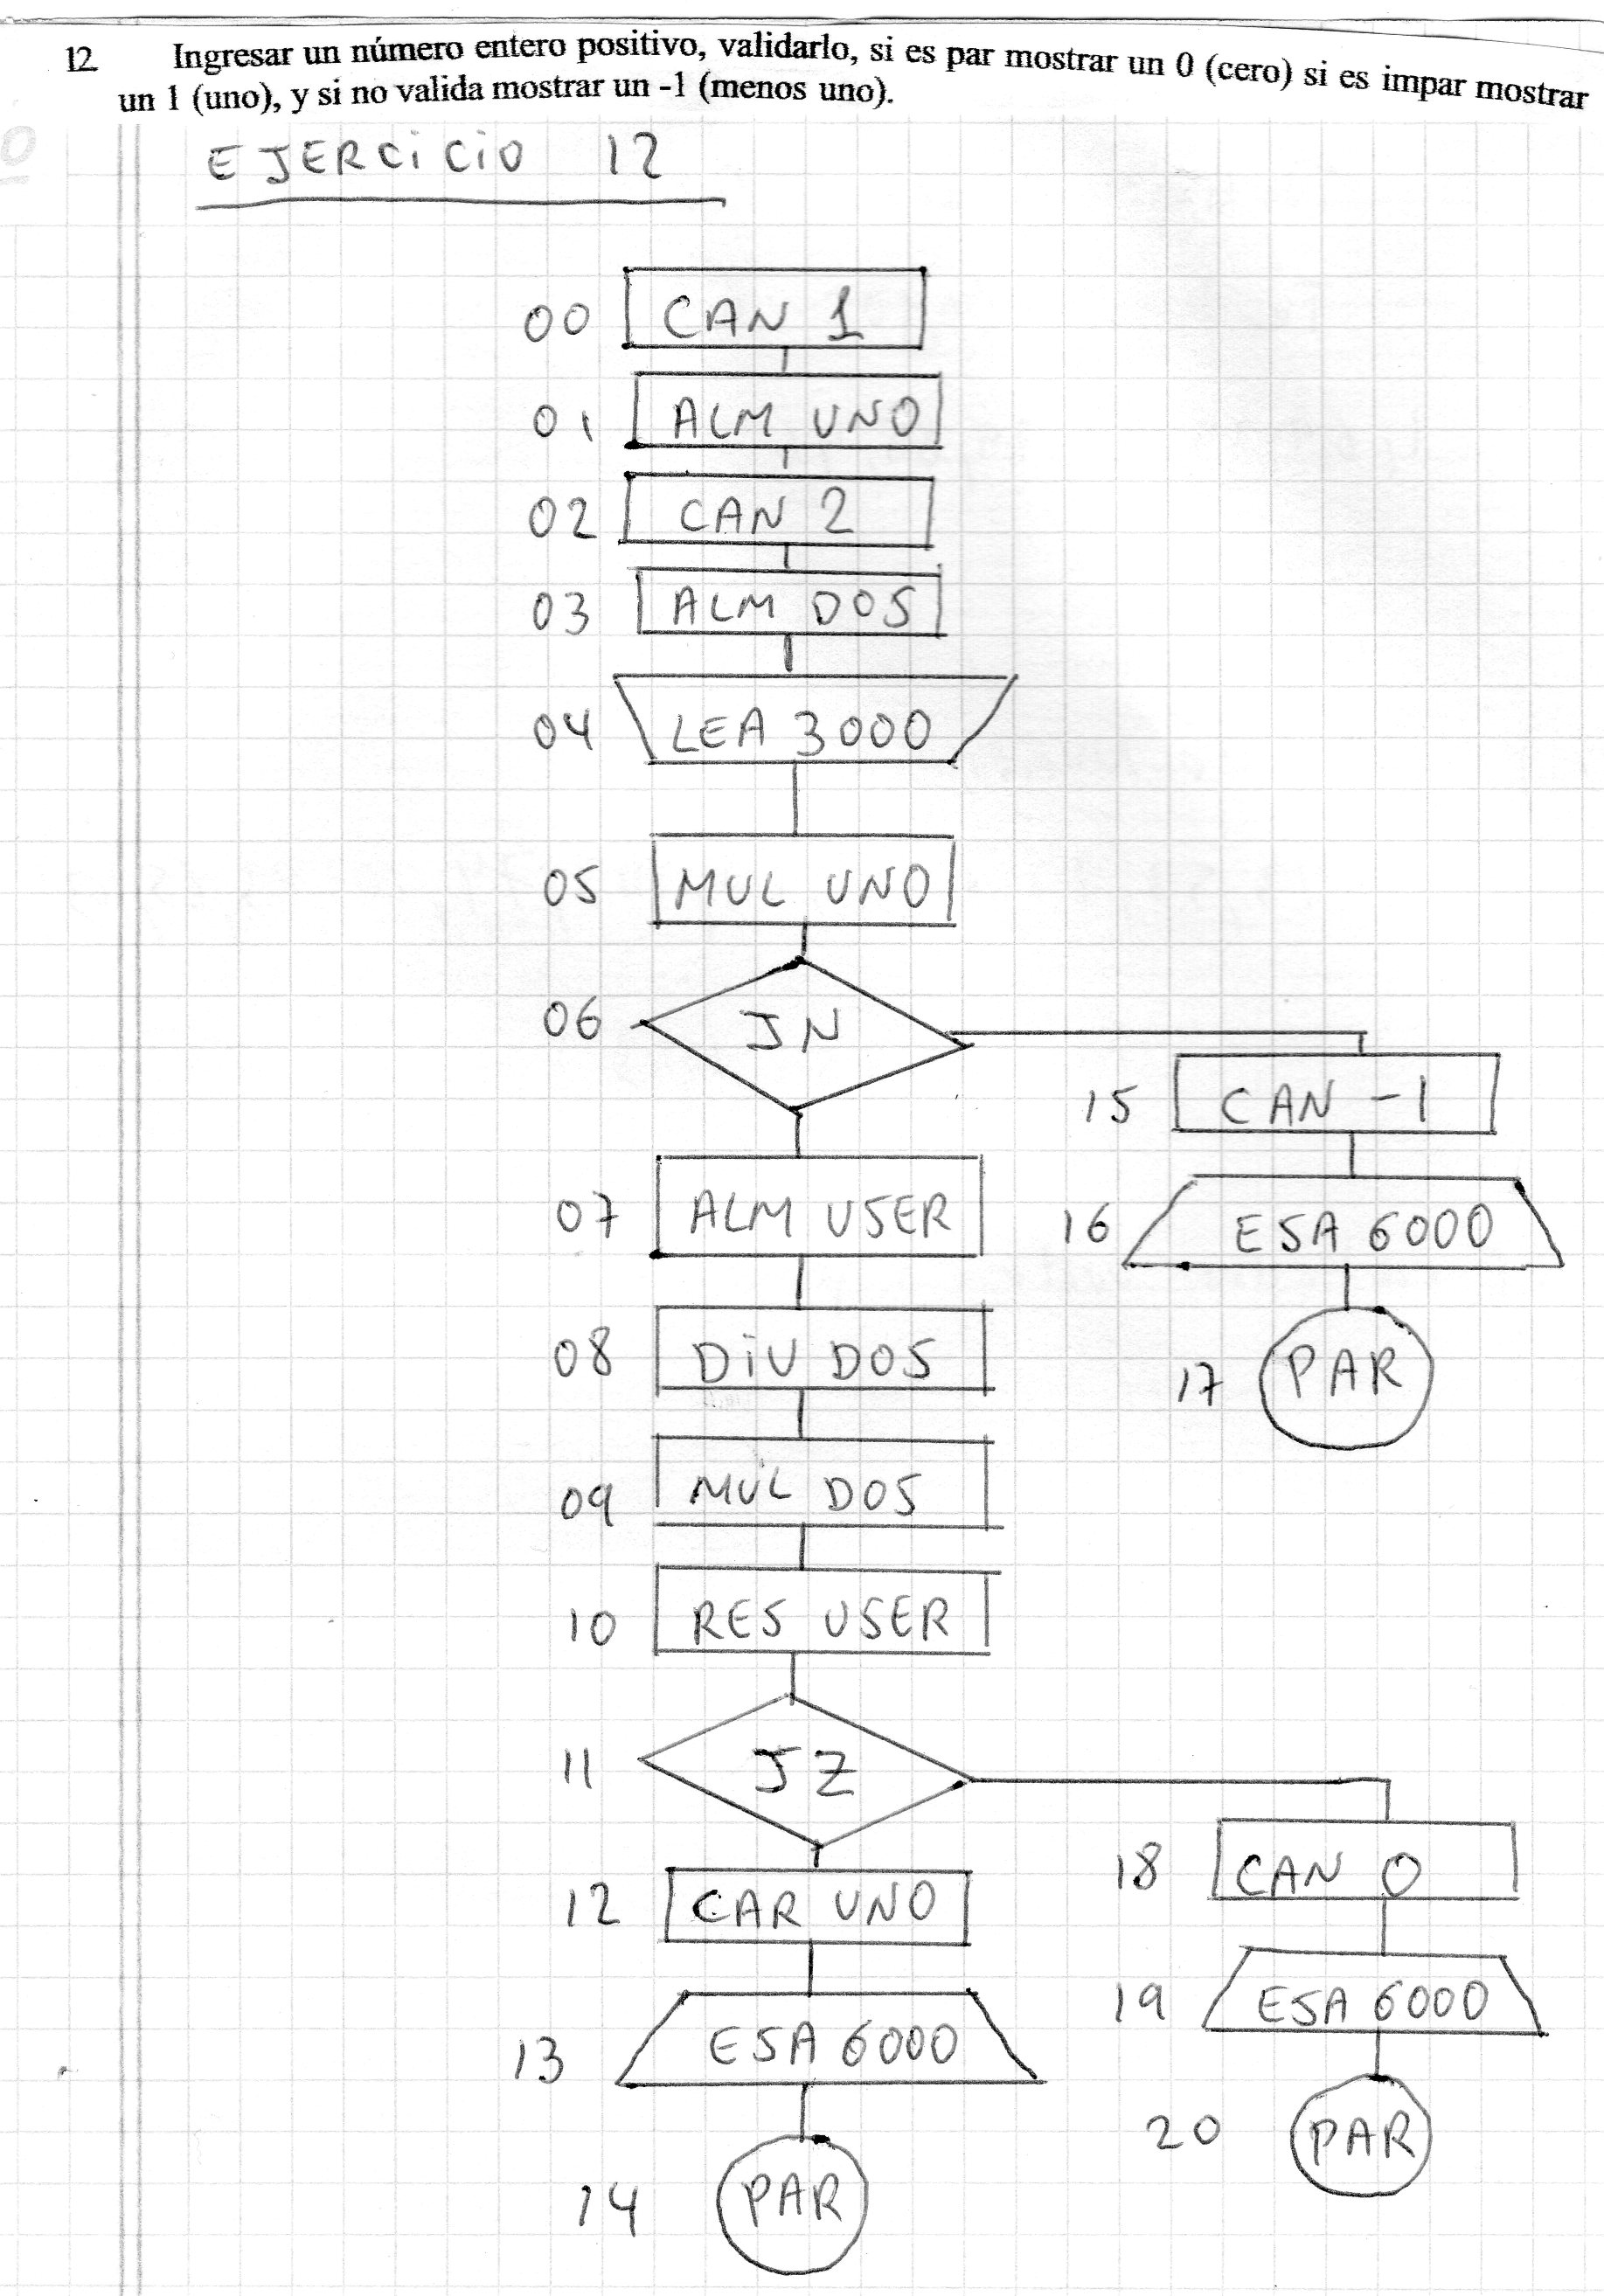 12 Ingresar un número entero positivo, validarlo, si es par mostrar un 0 (cero) si es impar mostrar
un 1 (uno), y si no valida mostrar un -1 (menos uno).
EJERCiCiO 12
00 CAN 1
01 ALM UNO
02 CAN 2
03 ALM DOS
04 LEA 3000
05 MUL UNO
06 JN
15 CAN -1
07 ALM USER
16 ESA 6000
08 DiV DOS
17 PAR
09 MUL DOS
10 RES USER
11 JZ
18 CAN 0
12 CAR UNO
19 ESA 6000
13 ESA 6000
20 PAR
14 PAR